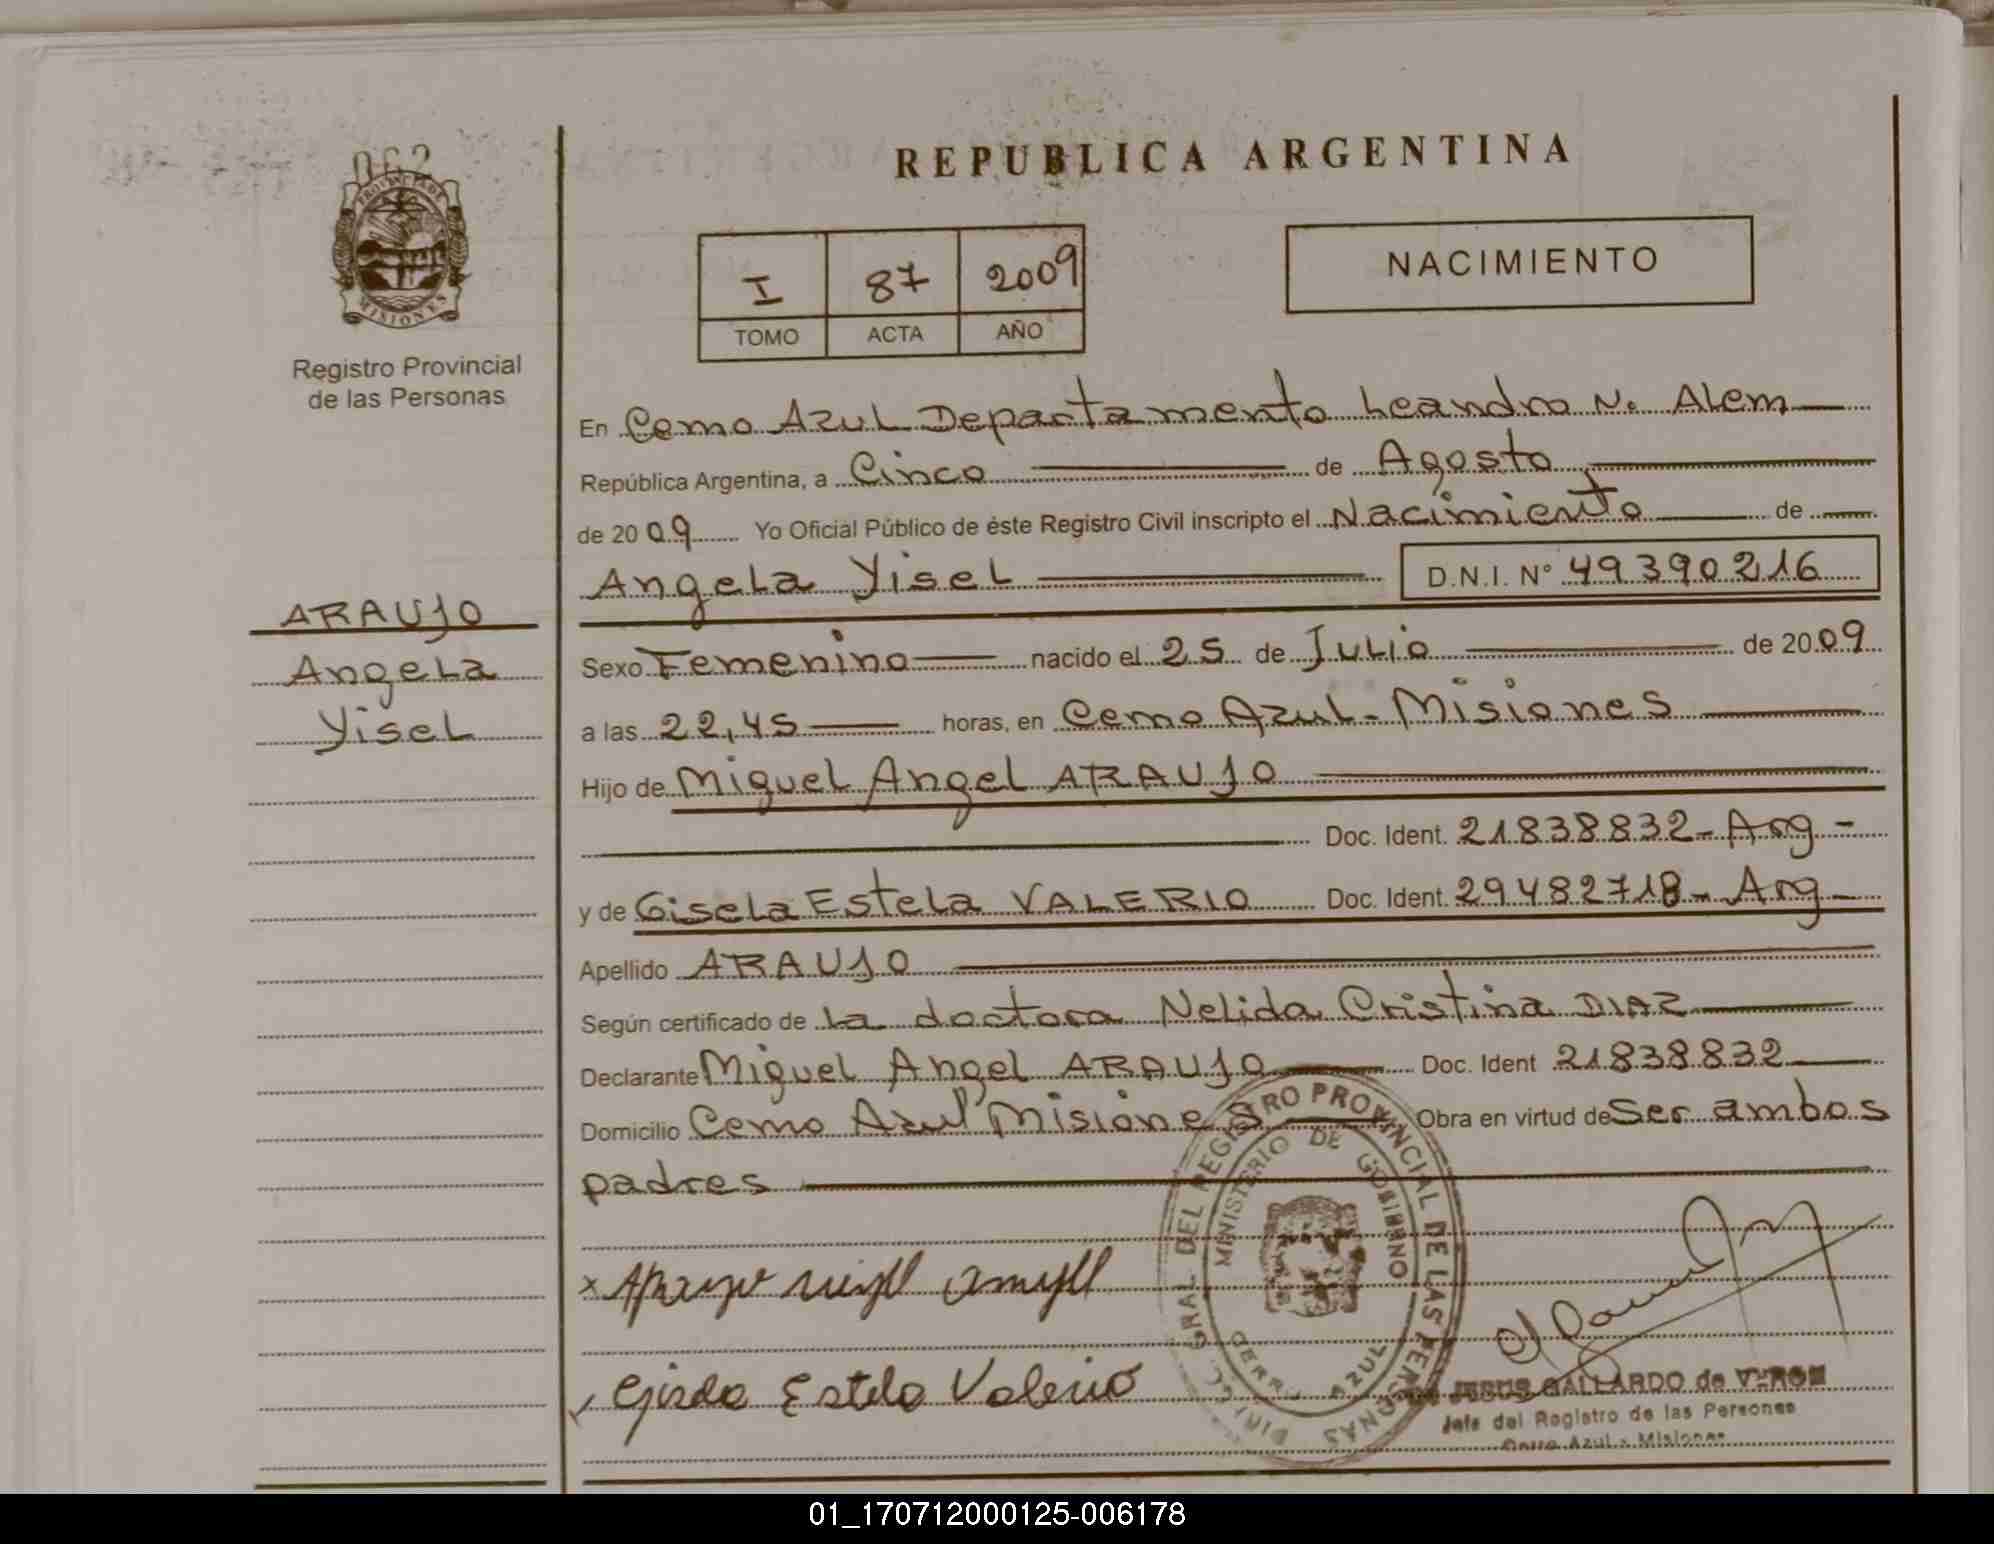 062
PROVINCIA DE
MISIONES
Registro Provincial
de las Personas
ARAUJO
Angela
Yisel
REPUBLICA ARGENTINA
I 87 2009
TOMO ACTA AÑO
NACIMIENTO
En Cerro Azul Departamento Leandro N. Alem
República Argentina, a Cinco de Agosto
de 2009 Yo Oficial Público de éste Registro Civil inscripto el Nacimiento de
Angela Yisel D.N.I. N° 49390216
Sexo Femenino nacido el 25 de Julio de 2009
a las 22,45 horas, en Cerro Azul - Misiones
Hijo de Miguel Angel ARAUJO
Doc. Ident. 21838832 - Arg -
y de Gisela Estela VALERIO Doc. Ident. 29482718 - Arg
Apellido ARAUJO
Según certificado de la doctora Nelida Cristina DIAZ
Declarante Miguel Angel ARAUJO Doc. Ident 21838832
Domicilio Cerro Azul Misiones Obra en virtud de Ser ambos
padres
DIREC. GRAL DEL REGISTRO PROVINCIAL DE LAS PERSONAS
MINISTERIO DE GOBIERNO
CERRO AZUL
x
Gisela Estela Valerio
JESUS GALLARDO de
Jefe del Registro de las Personas
Cerro Azul - Misiones
01_170712000125-006178